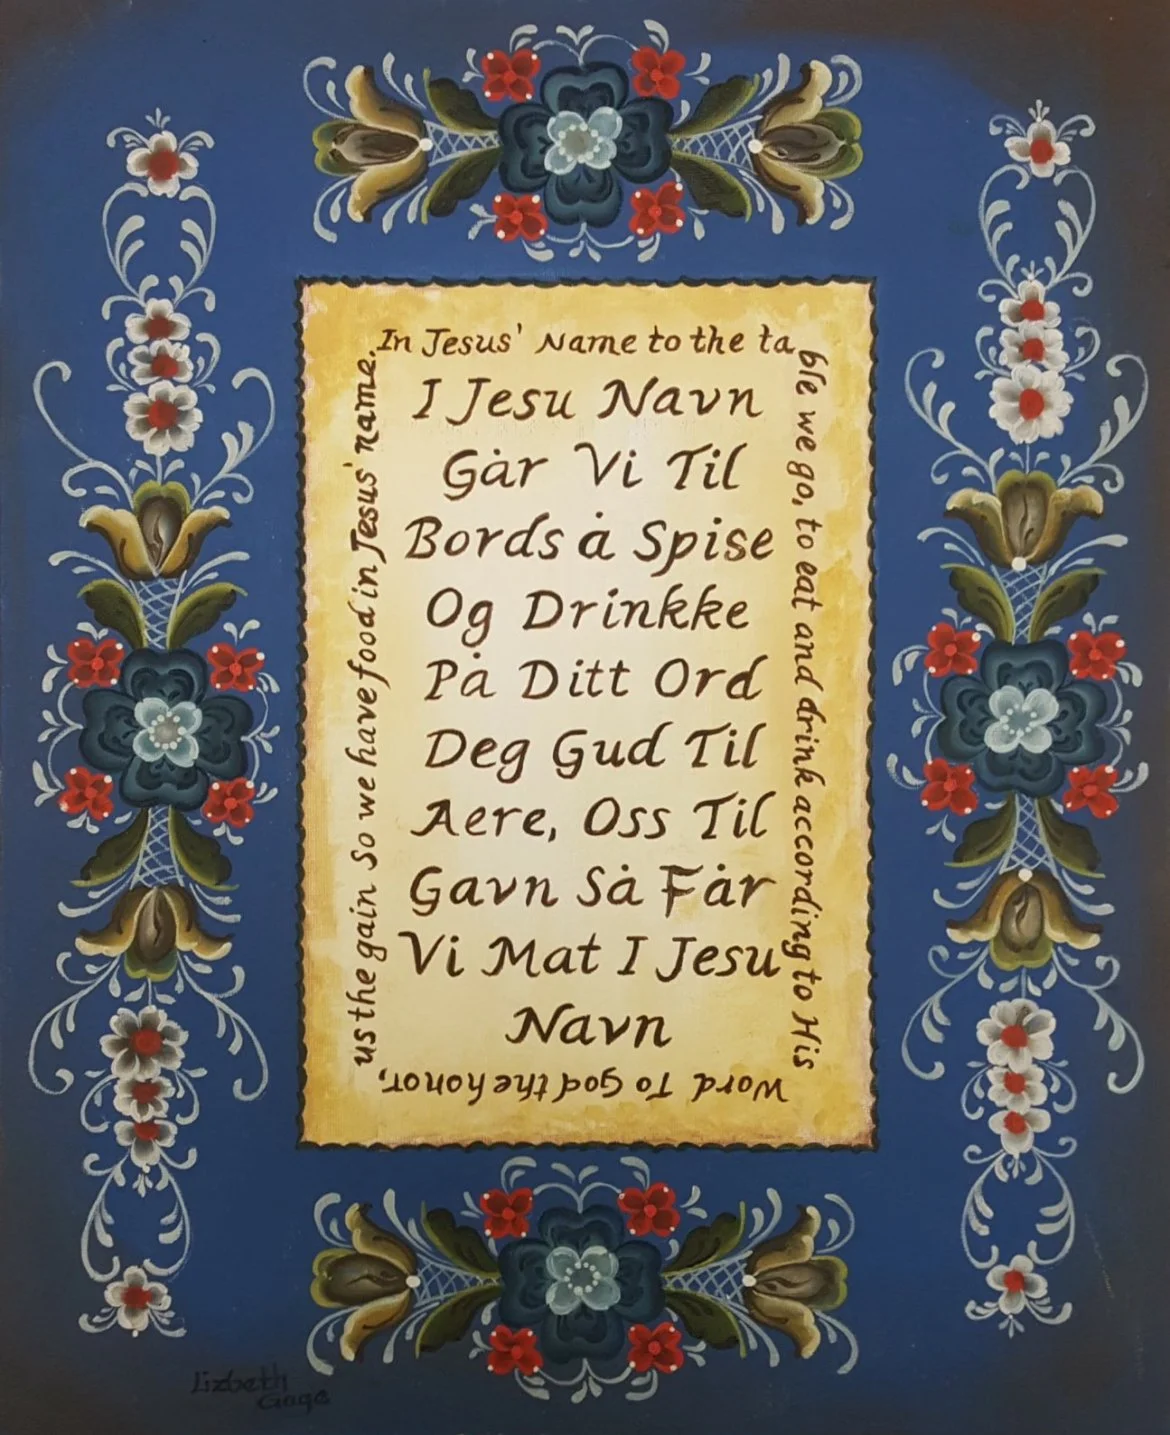 In Jesus' Name to the ta
ble we go, to eat and drink according to His
Word To god the honor,
us the gain So we have food in Jesus' name.
I Jesu Navn
Går Vi Til
Bords å Spise
Og Drinkke
På Ditt Ord
Deg Gud Til
Aere, Oss Til
Gavn Så Får
Vi Mat I Jesu
Navn
Lizbeth
Gage